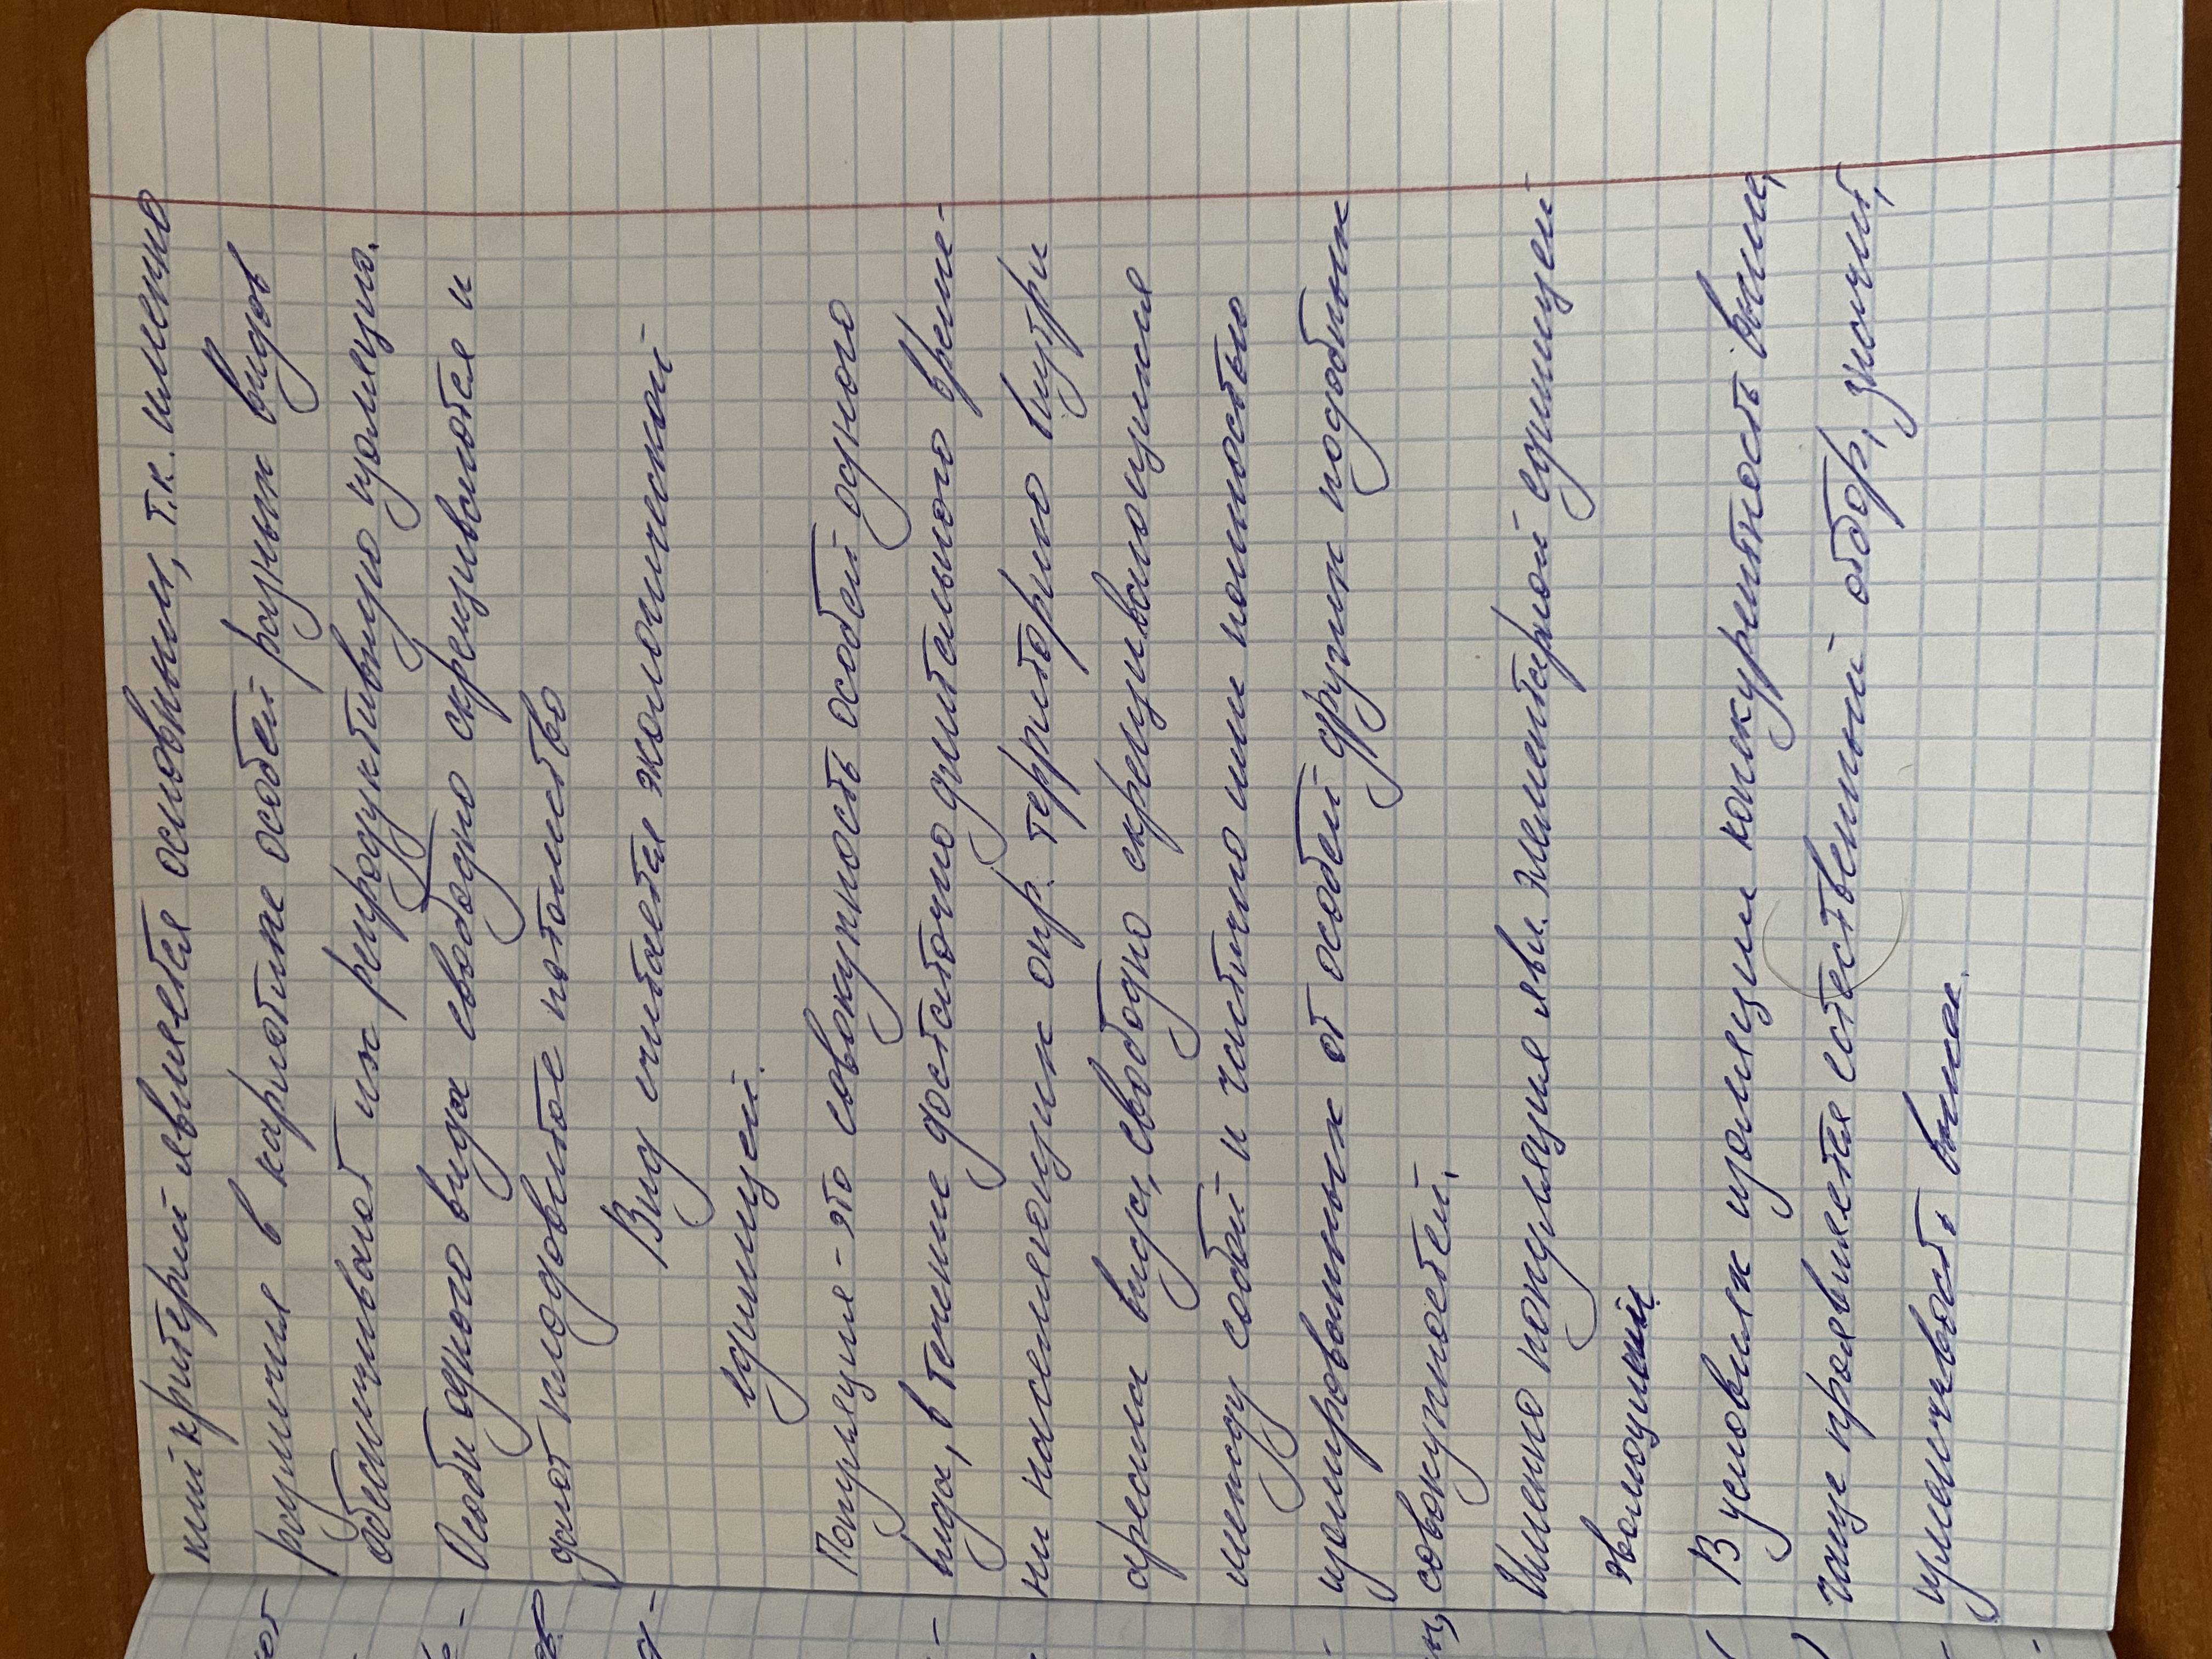 кий критерий является основным, т.к. именно
различия в кариотипе особей разных видов
обеспечивают их репродуктивную изоляцию.
Особи одного вида свободно скрещиваются и
дают плодовитое потомство
Вид считается экологической
единицей.
Популяция - это совокупность особей одного
вида, в течение достаточно длительного време-
ни населяющих опр. территорию внутри
ареала вида, свободно скрещивающихся
между собой и частично или полностью
изолированных от особей других подобных
совокупностей.
Именно популяция явл. элементарной единицей
эволюции
В условиях изоляции конкурентность выше,
чаще проявляется естественный отбор, значит,
изменчивость выше.